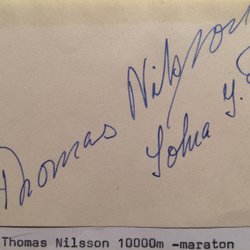 Thomas Nilsson
Thomas Nilsson 10000m -maraton